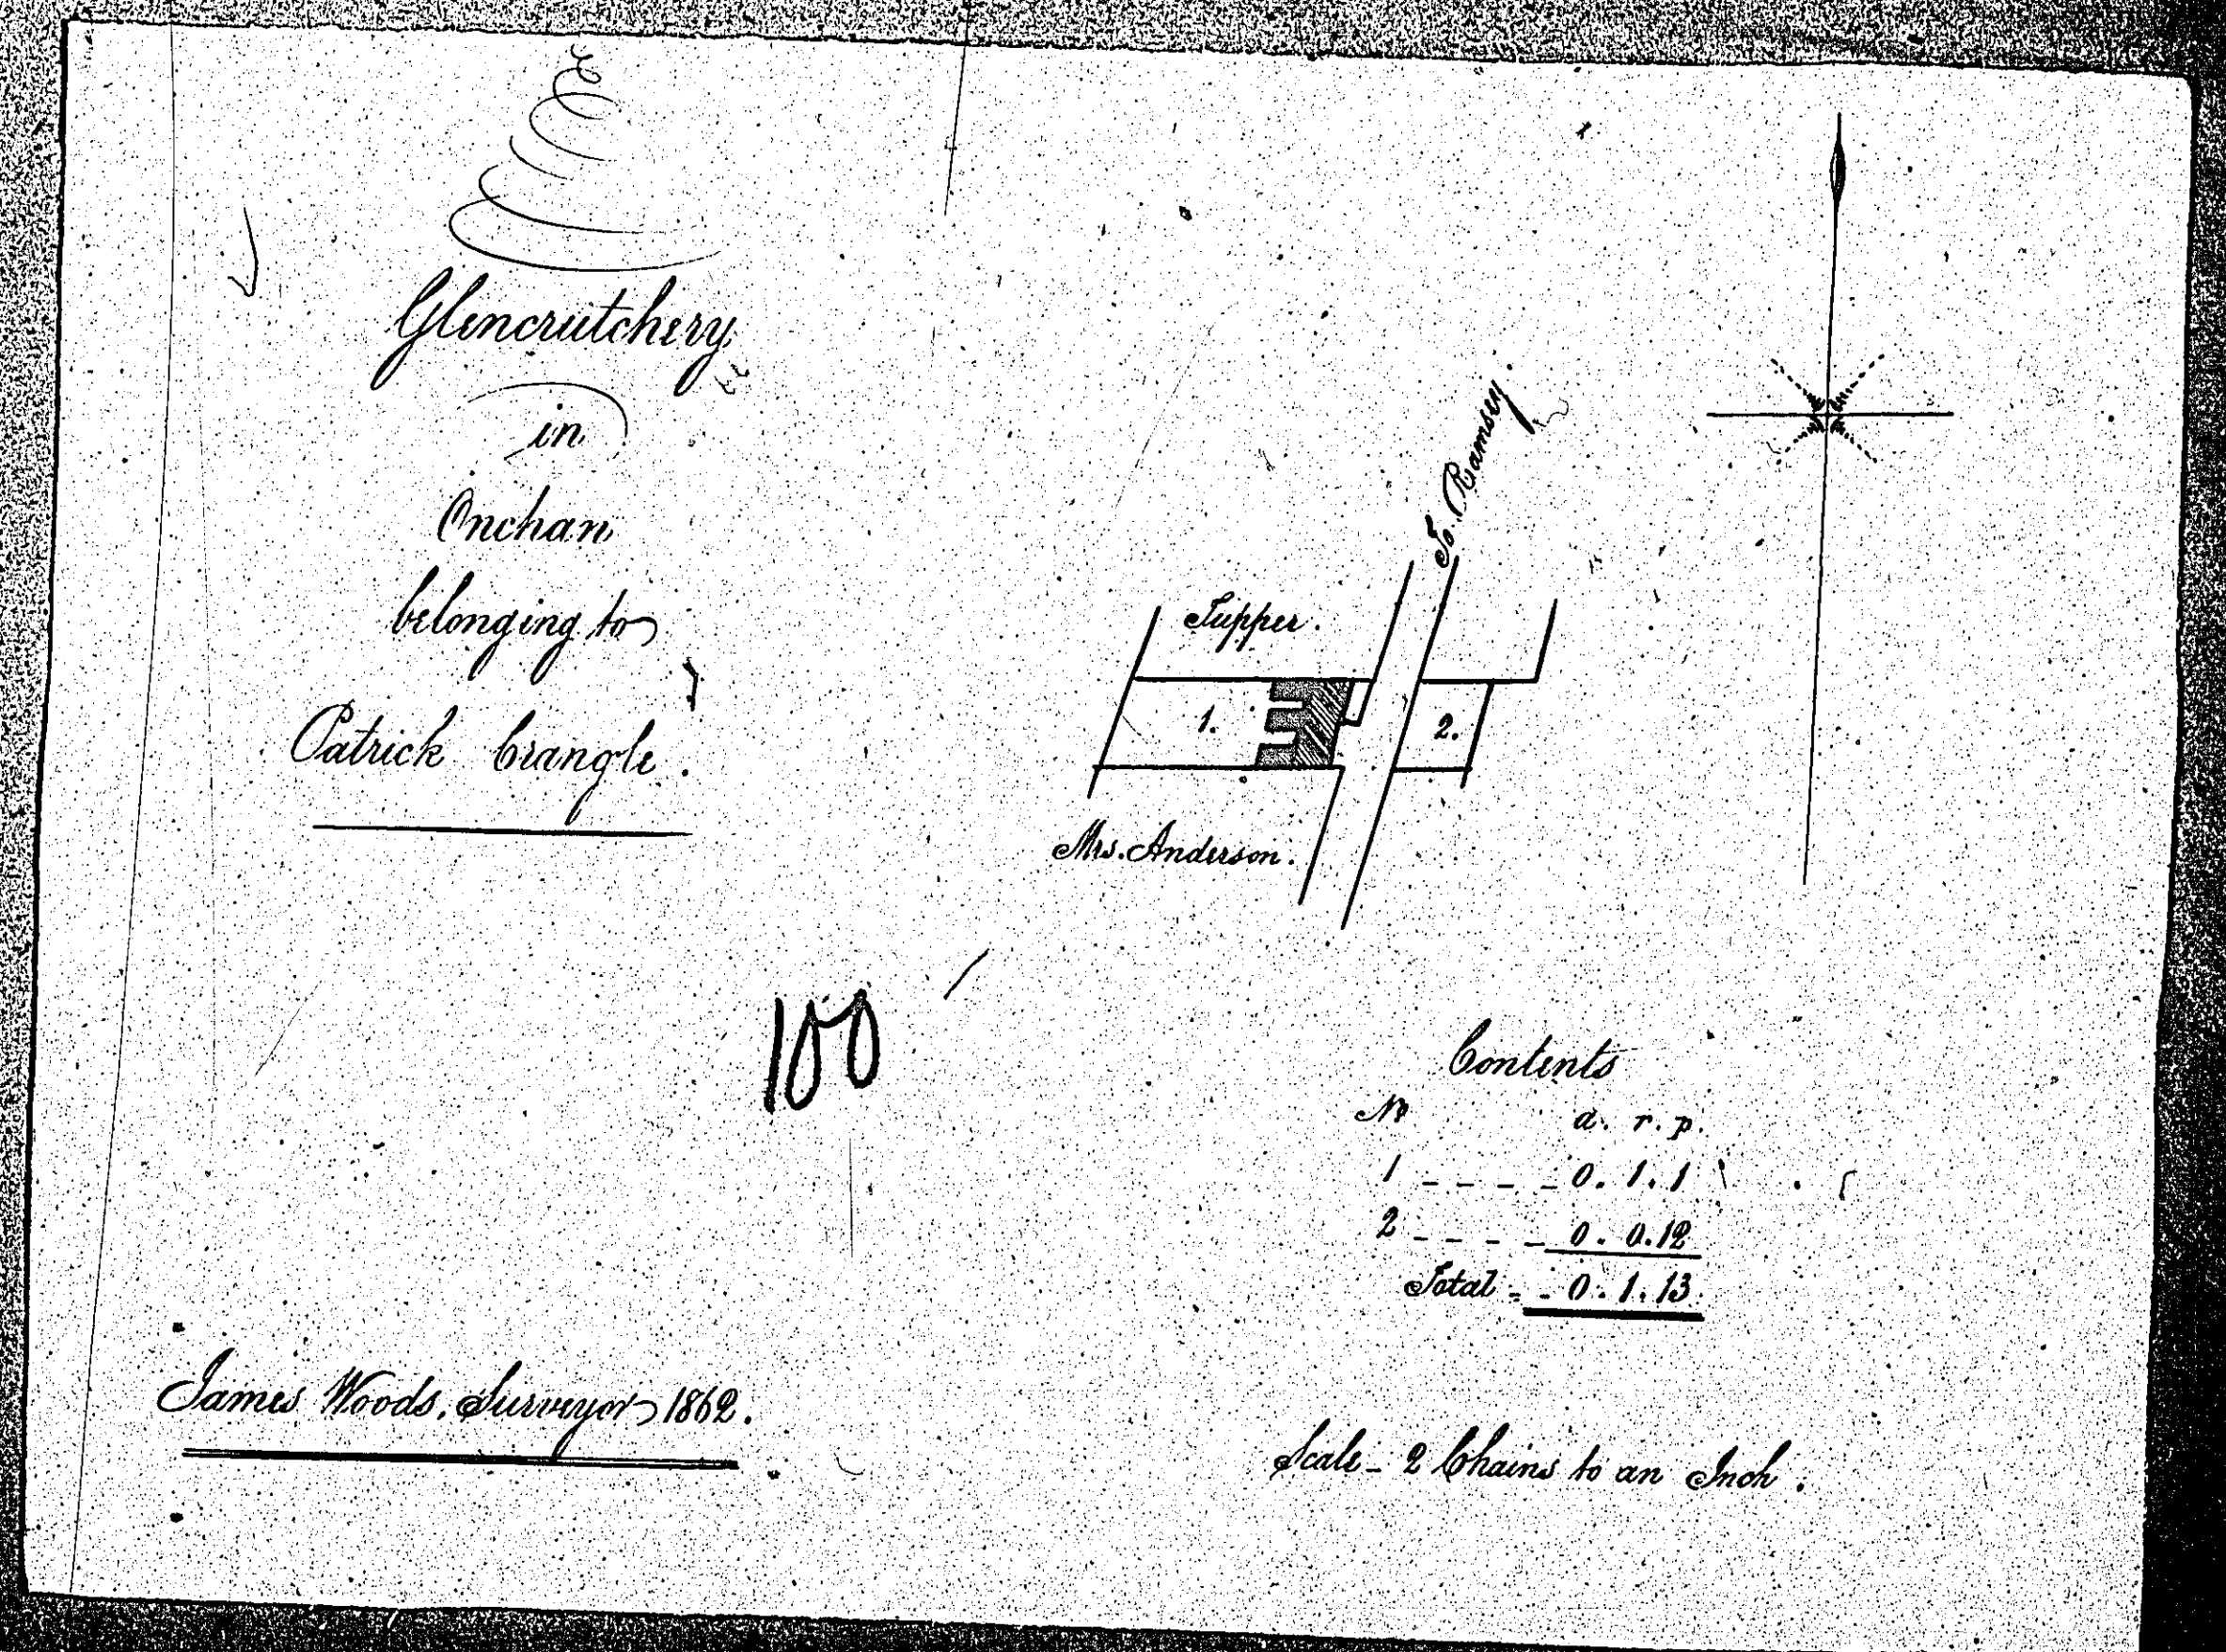 Glencrutchery
in
Onchan
belonging to
Patrick Crangle.
To Ramsey.
Tupper.
1.
2.
Mrs. Anderson.
100
Contents
No a. r. p.
1 _ _ _ _ 0. 1. 1
2 _ _ _ _ 0. 0. 12
Total _ _ 0. 1. 13.
James Woods. Surveyor 1862.
Scale _ 2 Chains to an Inch.